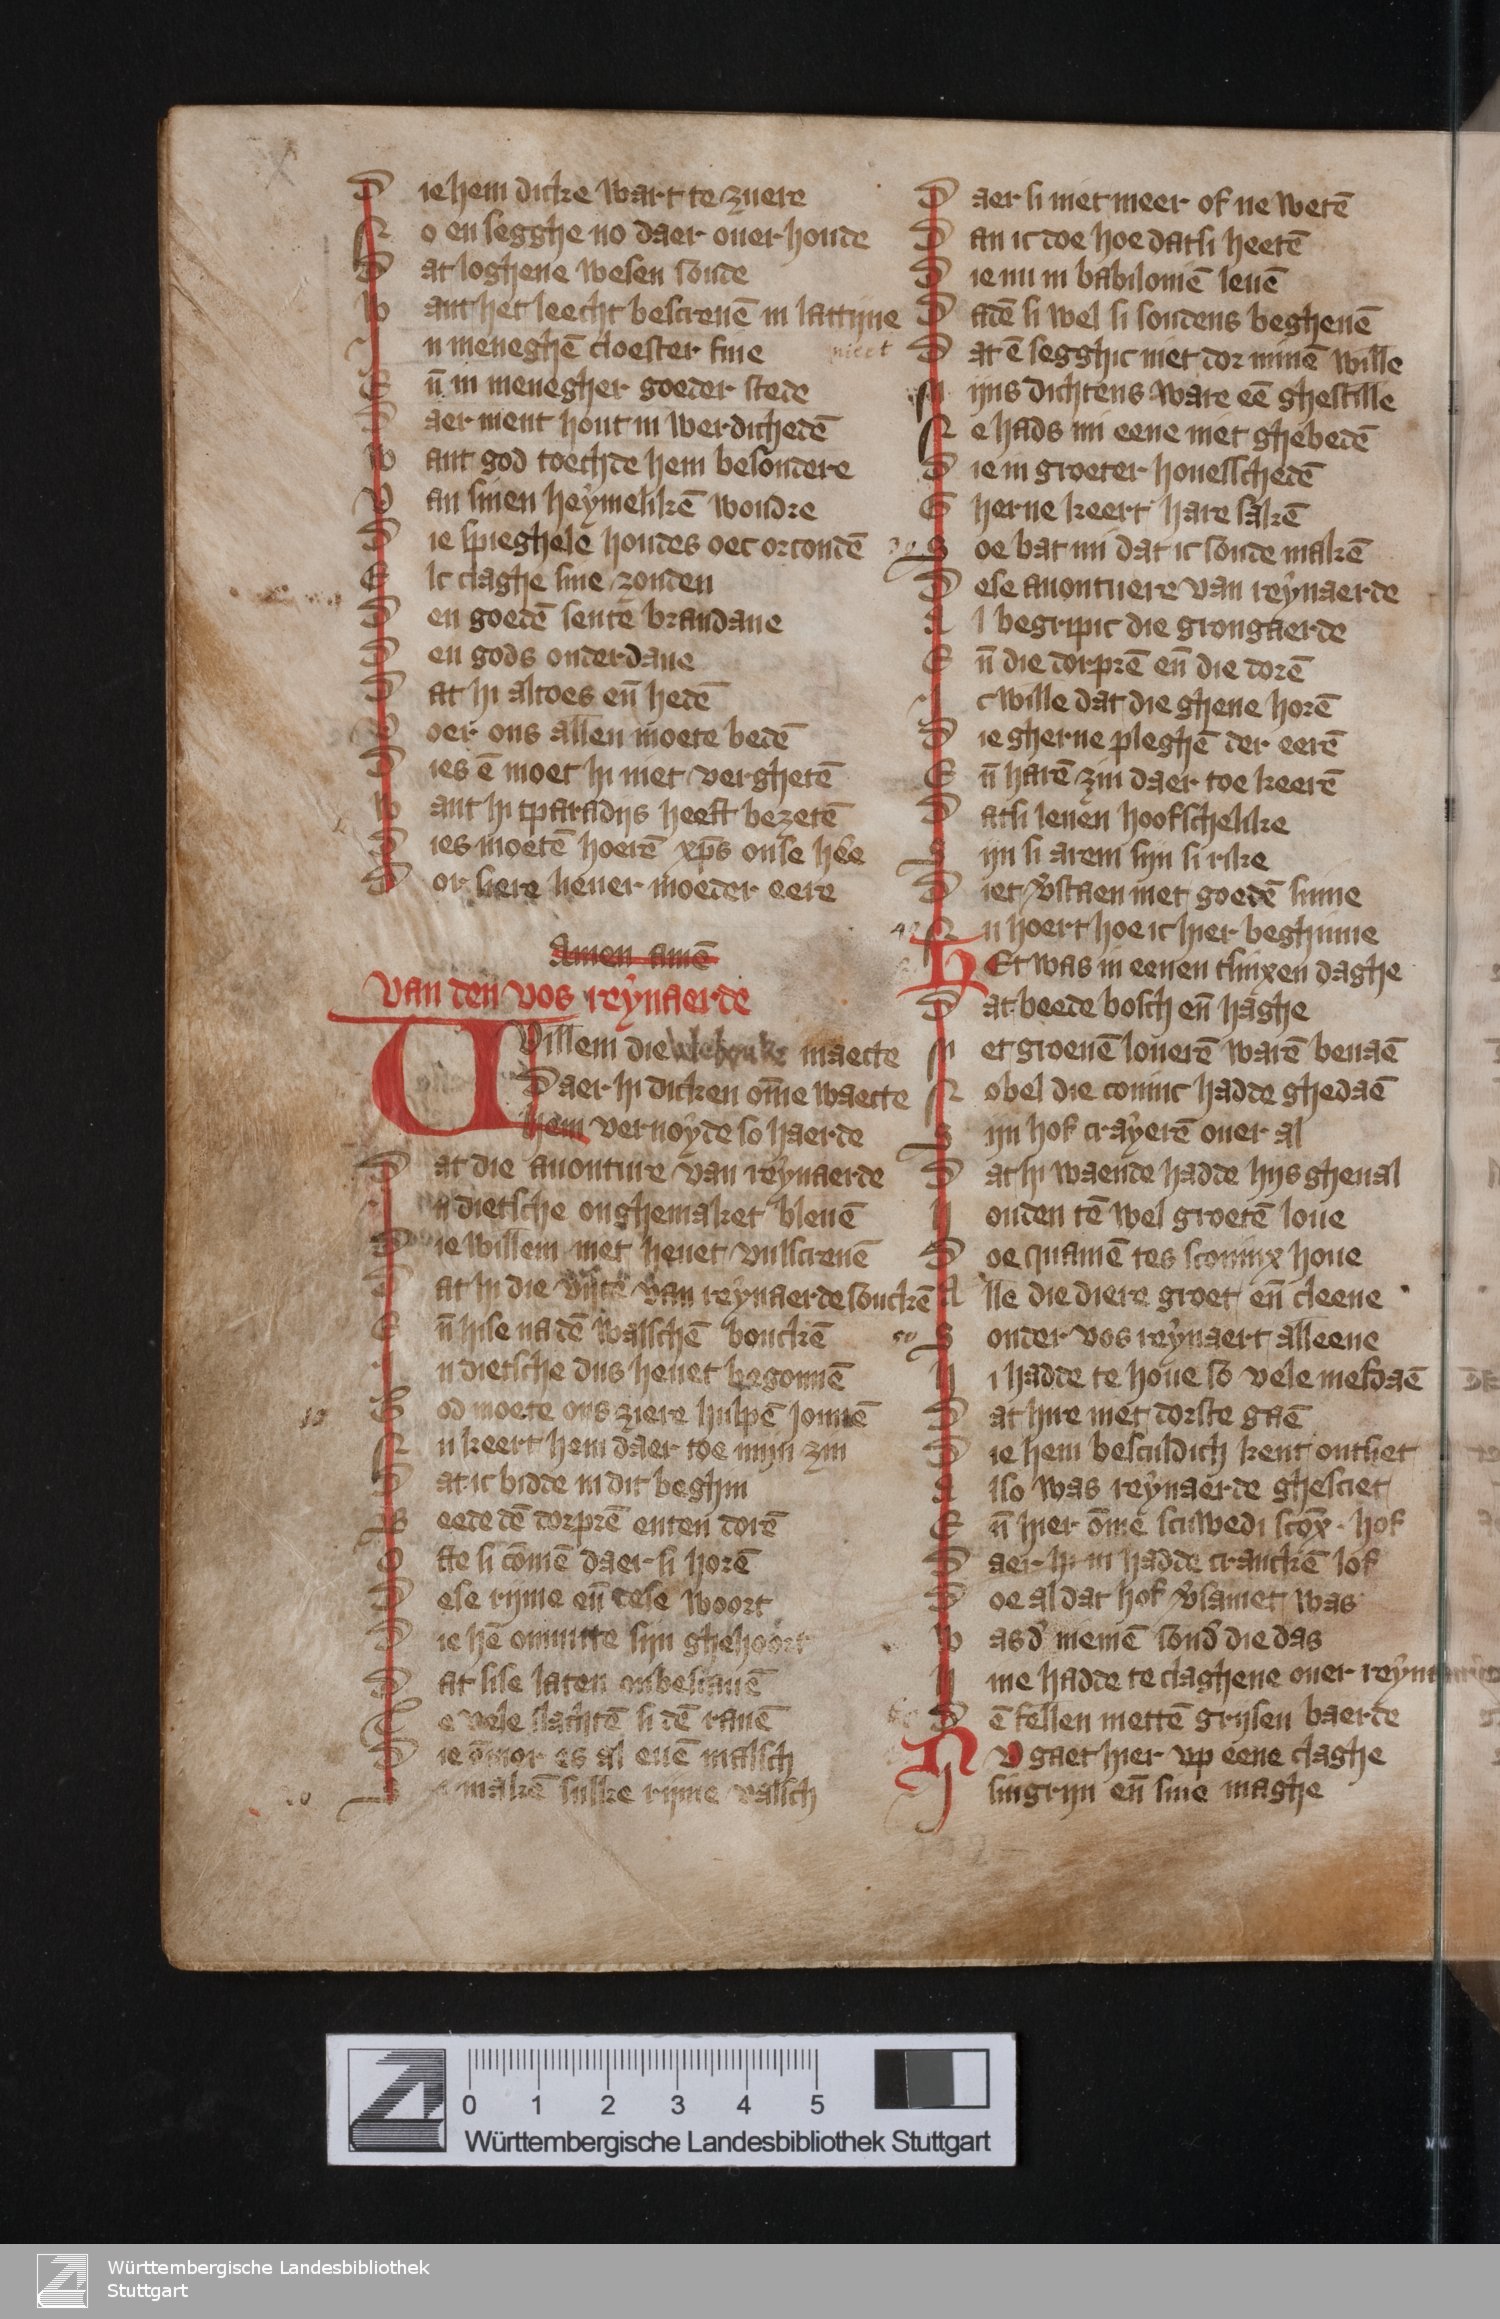 Die hem dicke wart te zuere
No en segghe no daer ouer houde
Dat loghene wesen soude
Want het leecht bescreuē in lattijne
In meneghē cloester fine
Eñ in menegher goeder stede
Daer ment hout in werdichedē
Want god toechde hem besondere
Van sinen heymelikē wondre
Die spieghele houdes oec orcondē
Elc claghe sine zonden
Den goedē sente brandane
Den gods onderdane
Dat hi altoes eñ hedē
Voer ons allen moete bedē
Dies ē moet hi niet verghetē
Want hi tparadijs heeft bezetē
Dies moetē hoerē xp̄s onse h̄e
Dor siere lieuer moeder eere
Amen amē
Van den vos reynaerde
Willem die maecte
Daer hi dicken om̄e waecte
Hem vernoyde so haerde
Dat die auonture van reynaerde
In dietsche onghemaket bleuē
Die willem niet heuet vulscreuē
Dat hi die vijte van reynaerde souckē
Eñ hise na dē walschē bouckē
In dietsche dus heuet begonnē
God moete ons ziere hulpē jonnē
10
Nu keert hem daer toe mijn zin
Dat ic bidde in dit beghin
Beede dē dorprē enten dorē
Ofte si cōmē daer si horē
Dese rijme eñ dese woort
Die hē onnutte sijn ghehoort
Dat sise laten onbescauē
Te vele slachtē si dē rauē
Die ēmor es al euē malsch
Si makē sulke rijme valsch
20
Daer si niet meer of ne wetē
Dan ic doe hoe datsi heetē
Die nu in babilonië leuē
Dadē si wel si soudens begheuē
Dat ē segghic niet dor minē wille
Mijns dichtens ware eē ghestille
Ne hads mi eene niet ghebedē
Die in groeter houesschedē
Gherne keert hare sakē
30
Soe bat mi dat ic soude makē
Dese auontuere van reynaerde
Al begripic die grongaerde
Eñ die dorprē eñ die dorē
Ic wille dat die ghene horē
Die gherne pleghē der eerē
Eñ harē zin daer toe keerē
Datsi leuen hoofschelike
Sijn si arem sijn si rike
Diet v̄staen met goedē sinne
40
Nu hoert hoe ic hier beghinne
Het was in eenen tsinxen daghe
Dat beede bosch eñ haghe
Met groenē louerē warē beuaē
Nobel die coninc hadde ghedaē
Sijn hof crayerē ouer al
Dat hi waende hadde hijs gheual
Houden tē wel groetē loue
Doe quamē tes sconinx houe
Alle die diere groet eñ cleene
50
Sonder vos reynaert alleene
Hi hadde te houe so vele mesdaē
Dat hire niet dorste gaē
Die hem besculdich kent ontsiet
Also was reynaerde ghesciet
Eñ hier ōme scuwedi scōx hof
Daer hi in hadde cranckē lof
Doe al dat hof v̄samet was
Was d' niemē sond' die das
Hine hadde te claghene ouer reynaerde
60
Dē fellen mettē grijsen baerde
Nv gaet hier vp eene claghe
Isingrijn eñ sine maghe
0 1 2 3 4 5
Württembergische Landesbibliothek Stuttgart
Württembergische Landesbibliothek
Stuttgart